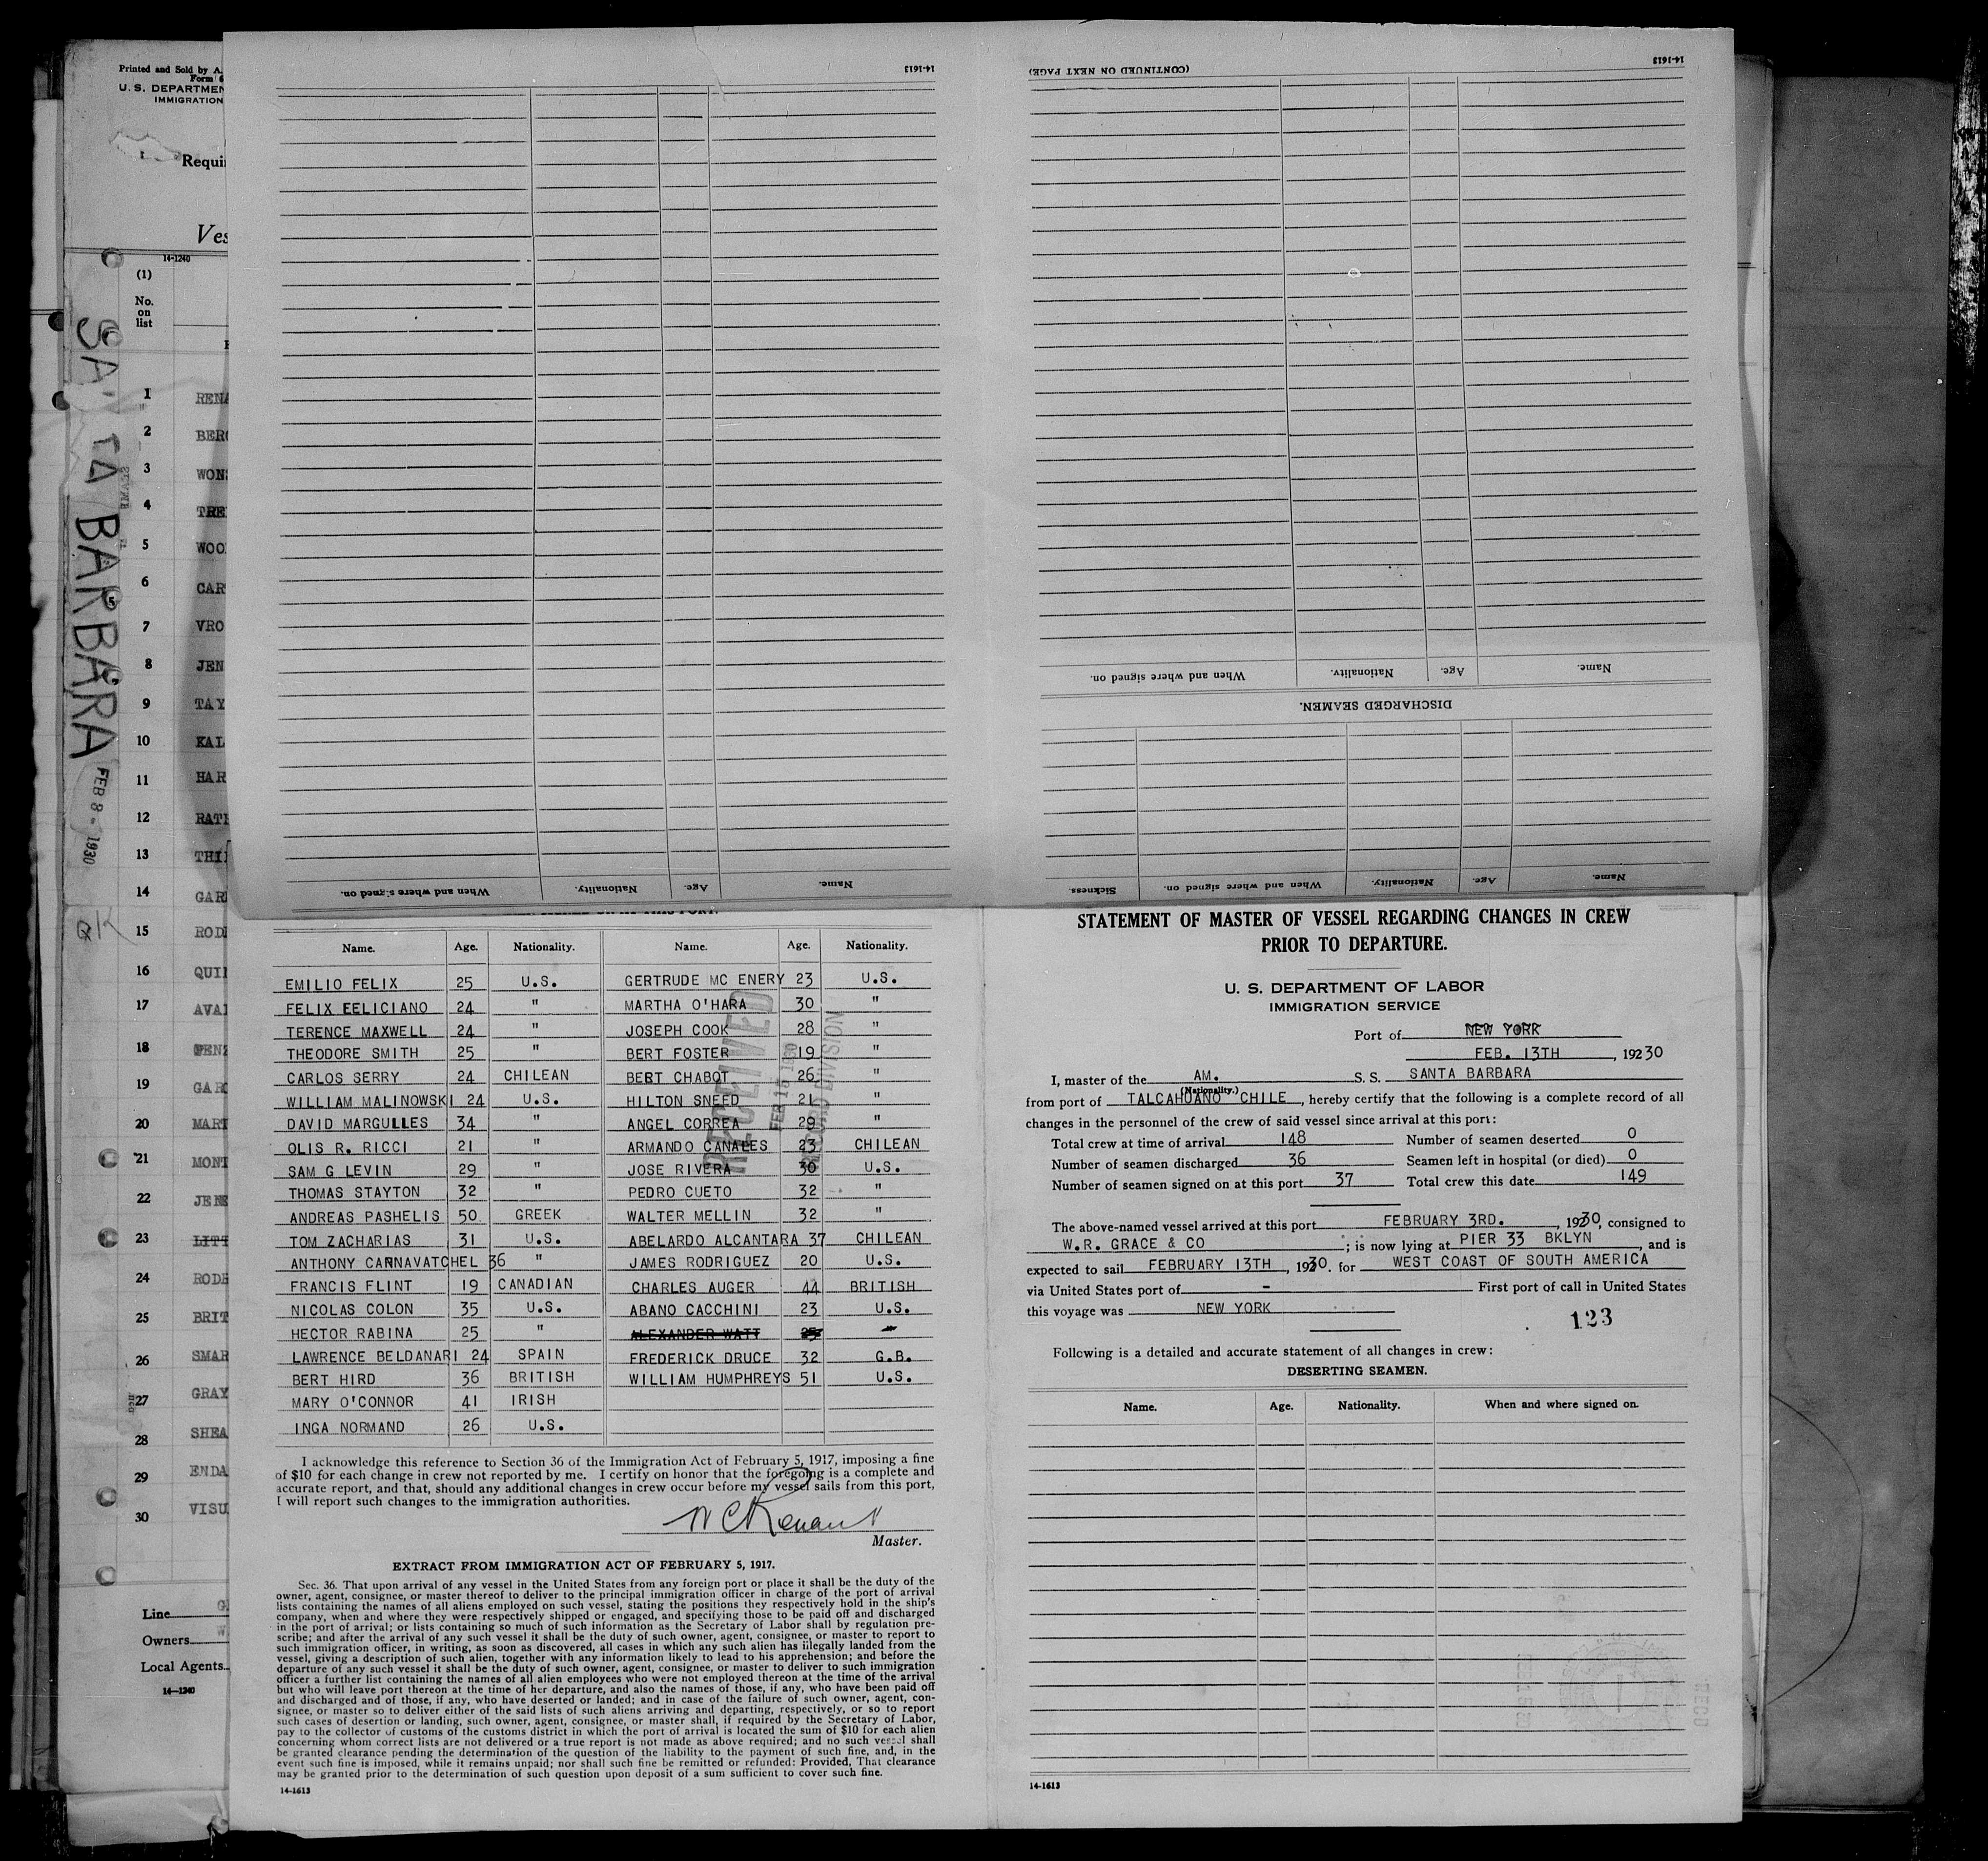 Printed and Sold by A.
Form 6
U. S. DEPARTMEN
IMMIGRATION
Requi
Ves
14-1240
(1)
No.
on
list
SA TA BARBARA
FEB 8 - 1930
1 RENA
2 BERG
3 WON
4 TRE
5 WOO
6 CAR
7 VRO
8 JEN
9 TAY
10 KAL
11 HAR
12 RATH
13 THI
14 GAR
15 ROD
16 QUI
17 AVA
18
19 GARC
20 MART
21 MONT
22 JENE
23 LITT
24 RODR
25 BRIT
26 SMAR
27 GRAY
28 SHEA
29 ENDA
30 VISU
Line
Owners
Local Agents
14-1240
14-1613
Name. Age. Nationality. When and where signed on.
14-1613
(CONTINUED ON NEXT PAGE)
Name. Age. Nationality. When and where signed on.
DISCHARGED SEAMEN.
Name. Age. Nationality. When and where signed on. Sickness.
Name. Age. Nationality. Name. Age. Nationality.
EMILIO FELIX 25 U.S. GERTRUDE MC ENERY 23 U.S.
FELIX FELICIANO 24 " MARTHA O'HARA 30 "
TERENCE MAXWELL 24 " JOSEPH COOK 28 "
THEODORE SMITH 25 " BERT FOSTER 19 "
CARLOS SERRY 24 CHILEAN BERT CHABOT 26 "
WILLIAM MALINOWSKI 24 U.S. HILTON SNEED 21 "
DAVID MARGULLES 34 " ANGEL CORREA 29 "
OLIS R. RICCI 21 " ARMANDO CANALES 23 CHILEAN
SAM G LEVIN 29 " JOSE RIVERA 30 U.S.
THOMAS STAYTON 32 " PEDRO CUETO 32 "
ANDREAS PASHELIS 50 GREEK WALTER MELLIN 32 "
TOM ZACHARIAS 31 U.S. ABELARDO ALCANTARA 37 CHILEAN
ANTHONY CARNAVATCHEL 36 " JAMES RODRIGUEZ 20 U.S.
FRANCIS FLINT 19 CANADIAN CHARLES AUGER 44 BRITISH
NICOLAS COLON 35 U.S. ABANO CACCHINI 23 U.S.
HECTOR RABINA 25 " ALEXANDER WATT 25 "
LAWRENCE BELDANARI 24 SPAIN FREDERICK DRUCE 32 G.B.
BERT HIRD 36 BRITISH WILLIAM HUMPHREYS 51 U.S.
MARY O'CONNOR 41 IRISH
INGA NORMAND 26 U.S.
RECEIVED
FEB 1 1930
RECORD DIVISION
I acknowledge this reference to Section 36 of the Immigration Act of February 5, 1917, imposing a fine
of $10 for each change in crew not reported by me. I certify on honor that the foregoing is a complete and
accurate report, and that, should any additional changes in crew occur before my vessel sails from this port,
I will report such changes to the immigration authorities.
Master.
EXTRACT FROM IMMIGRATION ACT OF FEBRUARY 5, 1917.
Sec. 36. That upon arrival of any vessel in the United States from any foreign port or place it shall be the duty of the
owner, agent, consignee, or master thereof to deliver to the principal immigration officer in charge of the port of arrival
lists containing the names of all aliens employed on such vessel, stating the positions they respectively hold in the ship's
company, when and where they were respectively shipped or engaged, and specifying those to be paid off and discharged
in the port of arrival; or lists containing so much of such information as the Secretary of Labor shall by regulation pre-
scribe; and after the arrival of any such vessel it shall be the duty of such owner, agent, consignee, or master to report to
such immigration officer, in writing, as soon as discovered, all cases in which any such alien has illegally landed from the
vessel, giving a description of such alien, together with any information likely to lead to his apprehension; and before the
departure of any such vessel it shall be the duty of such owner, agent, consignee, or master to deliver to such immigration
officer a further list containing the names of all alien employees who were not employed thereon at the time of the arrival
but who will leave port thereon at the time of her departure, and also the names of those, if any, who have been paid off
and discharged and of those, if any, who have deserted or landed; and in case of the failure of such owner, agent, con-
signee, or master so to deliver either of the said lists of such aliens arriving and departing, respectively, or so to report
such cases of desertion or landing, such owner, agent, consignee, or master shall, if required by the Secretary of Labor,
pay to the collector of customs of the customs district in which the port of arrival is located the sum of $10 for each alien
concerning whom correct lists are not delivered or a true report is not made as above required; and no such vessel shall
be granted clearance pending the determination of the question of the liability to the payment of such fine, and, in the
event such fine is imposed, while it remains unpaid; nor shall such fine be remitted or refunded: Provided, That clearance
may be granted prior to the determination of such question upon deposit of a sum sufficient to cover such fine.
14-1613
STATEMENT OF MASTER OF VESSEL REGARDING CHANGES IN CREW
PRIOR TO DEPARTURE.
U. S. DEPARTMENT OF LABOR
IMMIGRATION SERVICE
Port of NEW YORK
FEB. 13TH, 19230
I, master of the AM. S. S. SANTA BARBARA
(Nationality.)
from port of TALCAHUANO CHILE, hereby certify that the following is a complete record of all
changes in the personnel of the crew of said vessel since arrival at this port:
Total crew at time of arrival 148 Number of seamen deserted 0
Number of seamen discharged 36 Seamen left in hospital (or died) 0
Number of seamen signed on at this port 37 Total crew this date 149
The above-named vessel arrived at this port FEBRUARY 3RD., 1930, consigned to
W.R. GRACE & CO; is now lying at PIER 33 BKLYN, and is
expected to sail FEBRUARY 13TH, 1930. for WEST COAST OF SOUTH AMERICA
via United States port of - First port of call in United States
this voyage was NEW YORK
123
Following is a detailed and accurate statement of all changes in crew:
DESERTING SEAMEN.
Name. Age. Nationality. When and where signed on.
14-1613